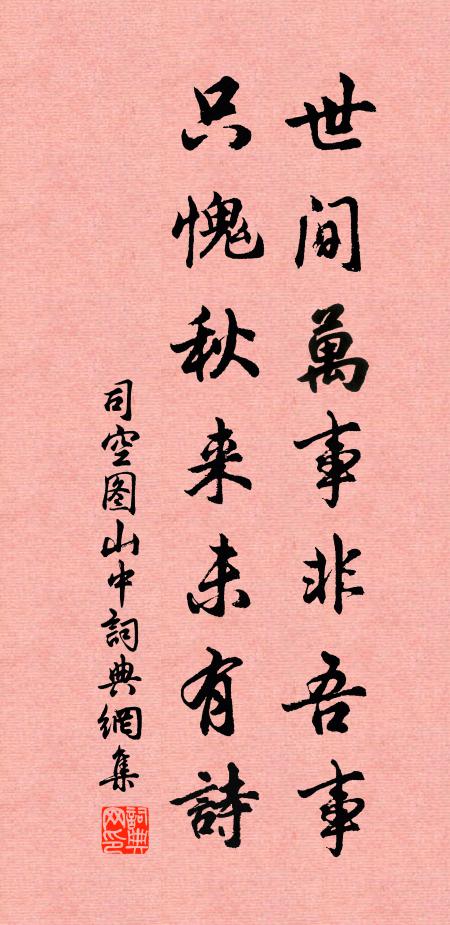 世间萬事非吾事
只愧秋来未有詩
司空图山中詞典網集
詞典网印